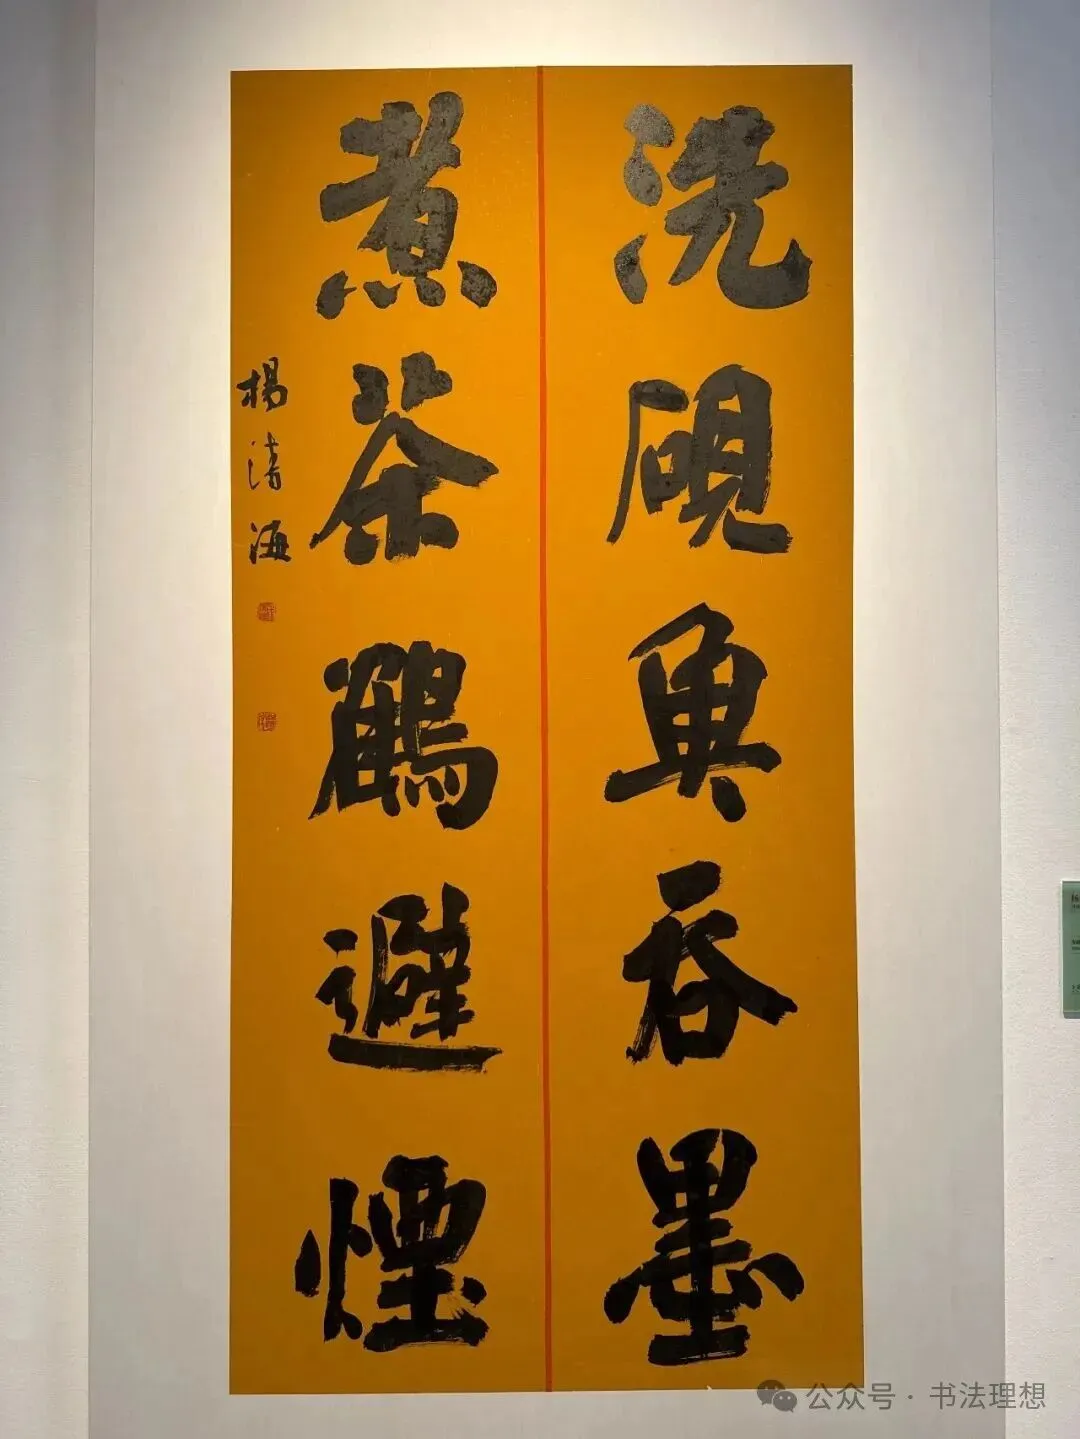 洗硯魚吞墨
煮茶鶴避煙
楊清海
公众号·书法理想